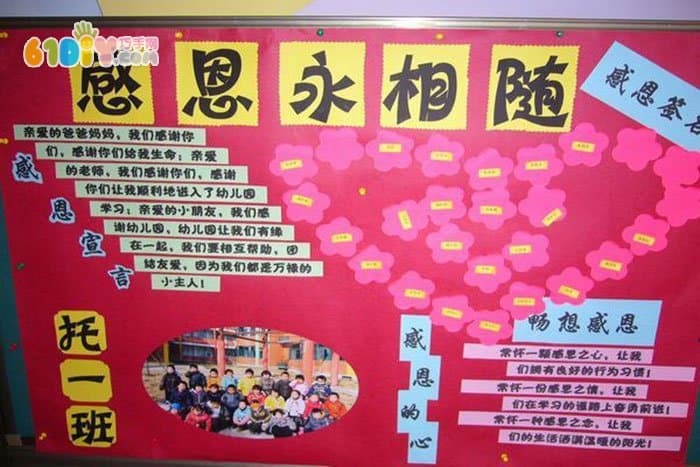 61DIY.com 巧手网
感恩永相随
感恩签名
感恩宣言
亲爱的爸爸妈妈，我们感谢你
们，感谢你们给我生命；亲爱
的老师，我们感谢你们，感谢
你们让我顺利地进入了幼儿园
学习；亲爱的小朋友，我们感
谢幼儿园，幼儿园让我们有缘
在一起，我们要相互帮助，团
结友爱，因为我们都是万禄的
小主人！
托一班
感恩的心
畅想感恩
常怀一颗感恩之心，让我
们拥有良好的行为习惯！
常怀一份感恩之情，让我
们在学习的道路上奋勇前进！
常怀一种感恩之念，让我
们的生活洒满温暖的阳光！